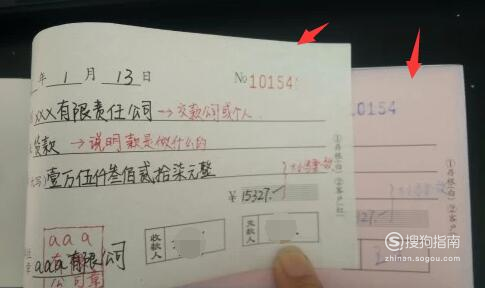 年 1 月 13 日 No 10154
XXX有限责任公司 → 交款公司或个人
货款 → 说明款是做什么的
大写) 壹万伍仟叁佰贰拾柒元整
¥ 15327.-
①存根(白) ②客户(红)
收款人
交款人
aaa
aaa有限公司
10154
①存根(白) ②客户(红)
搜狗指南
zhinan.sogou.com